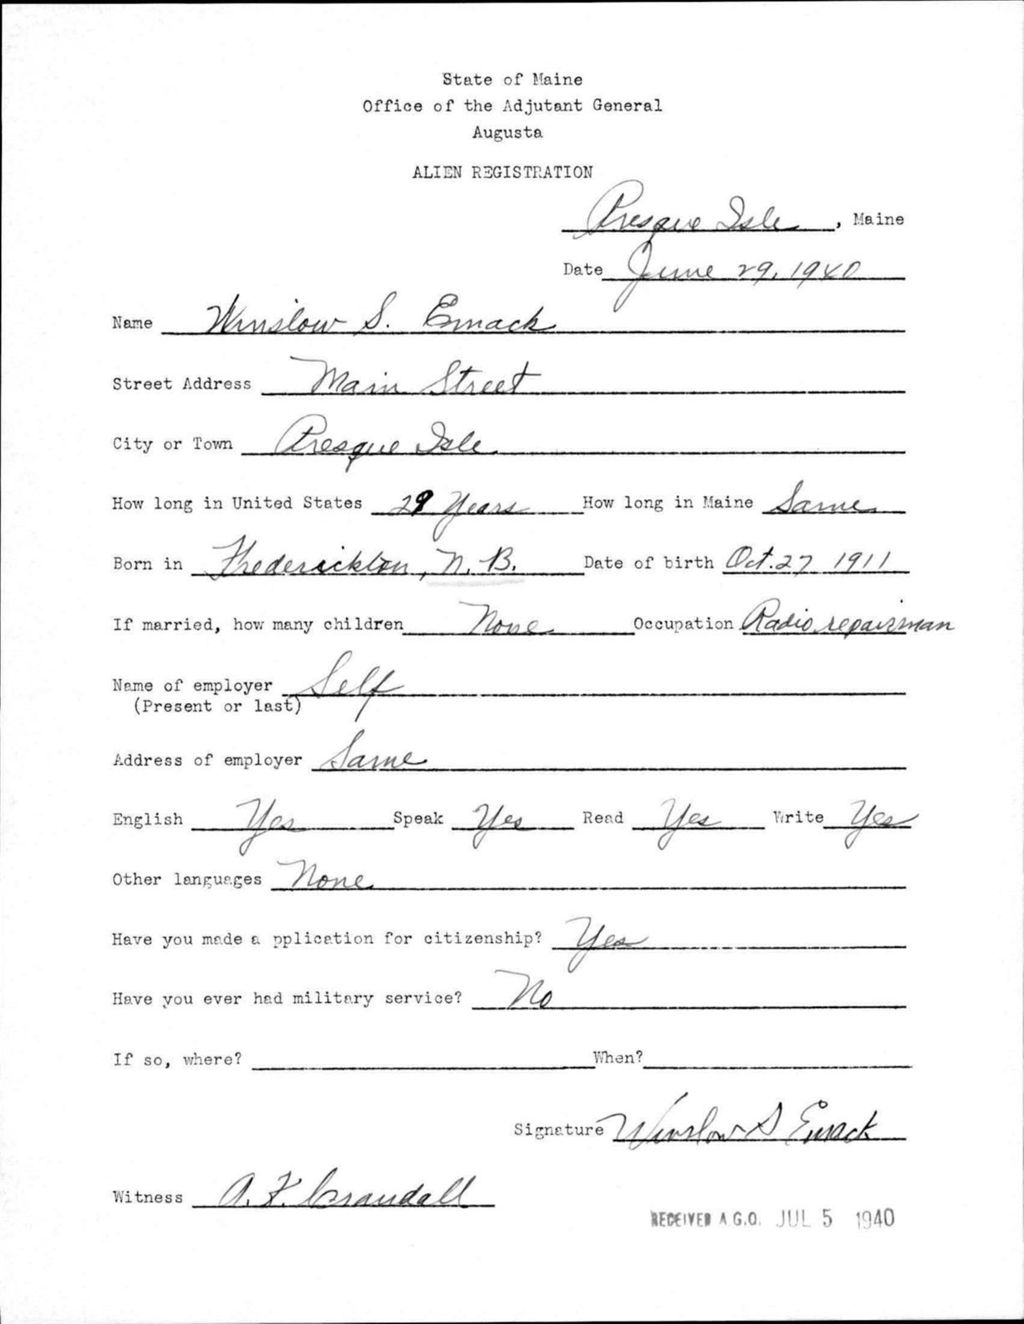 State of Maine
Office of the Adjutant General
Augusta
ALIEN REGISTRATION
Presque Isle, Maine
Date June 29, 1940
Name Winslow S. Emack
Street Address Main Street
City or Town Presque Isle
How long in United States 29 Years How long in Maine Same
Born in Fredericklton, N. B. Date of birth Oct. 27 1911
If married, how many children None Occupation Radio repairman
Name of employer Self
(Present or last)
Address of employer Same
English Yes Speak Yes Read Yes Write Yes
Other languages None
Have you made a pplication for citizenship? Yes
Have you ever had military service? No
If so, where? When?
Signature Winslow S Emack
Witness A. F. Crandall
RECEIVED A.G.O. JUL 5 1940